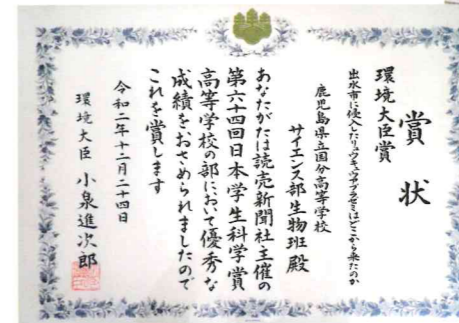 賞状
環境大臣賞
出水市に侵入したリュウキュウアブラゼミはどこから来たのか
鹿児島県立国分高等学校
サイエンス部生物班殿
あなたがたは読売新聞社主催の
第六十四回日本学生科学賞
高等学校の部において優秀な
成績をおさめられましたので
これを賞します
令和二年十二月二十四日
環境大臣 小泉進次郎